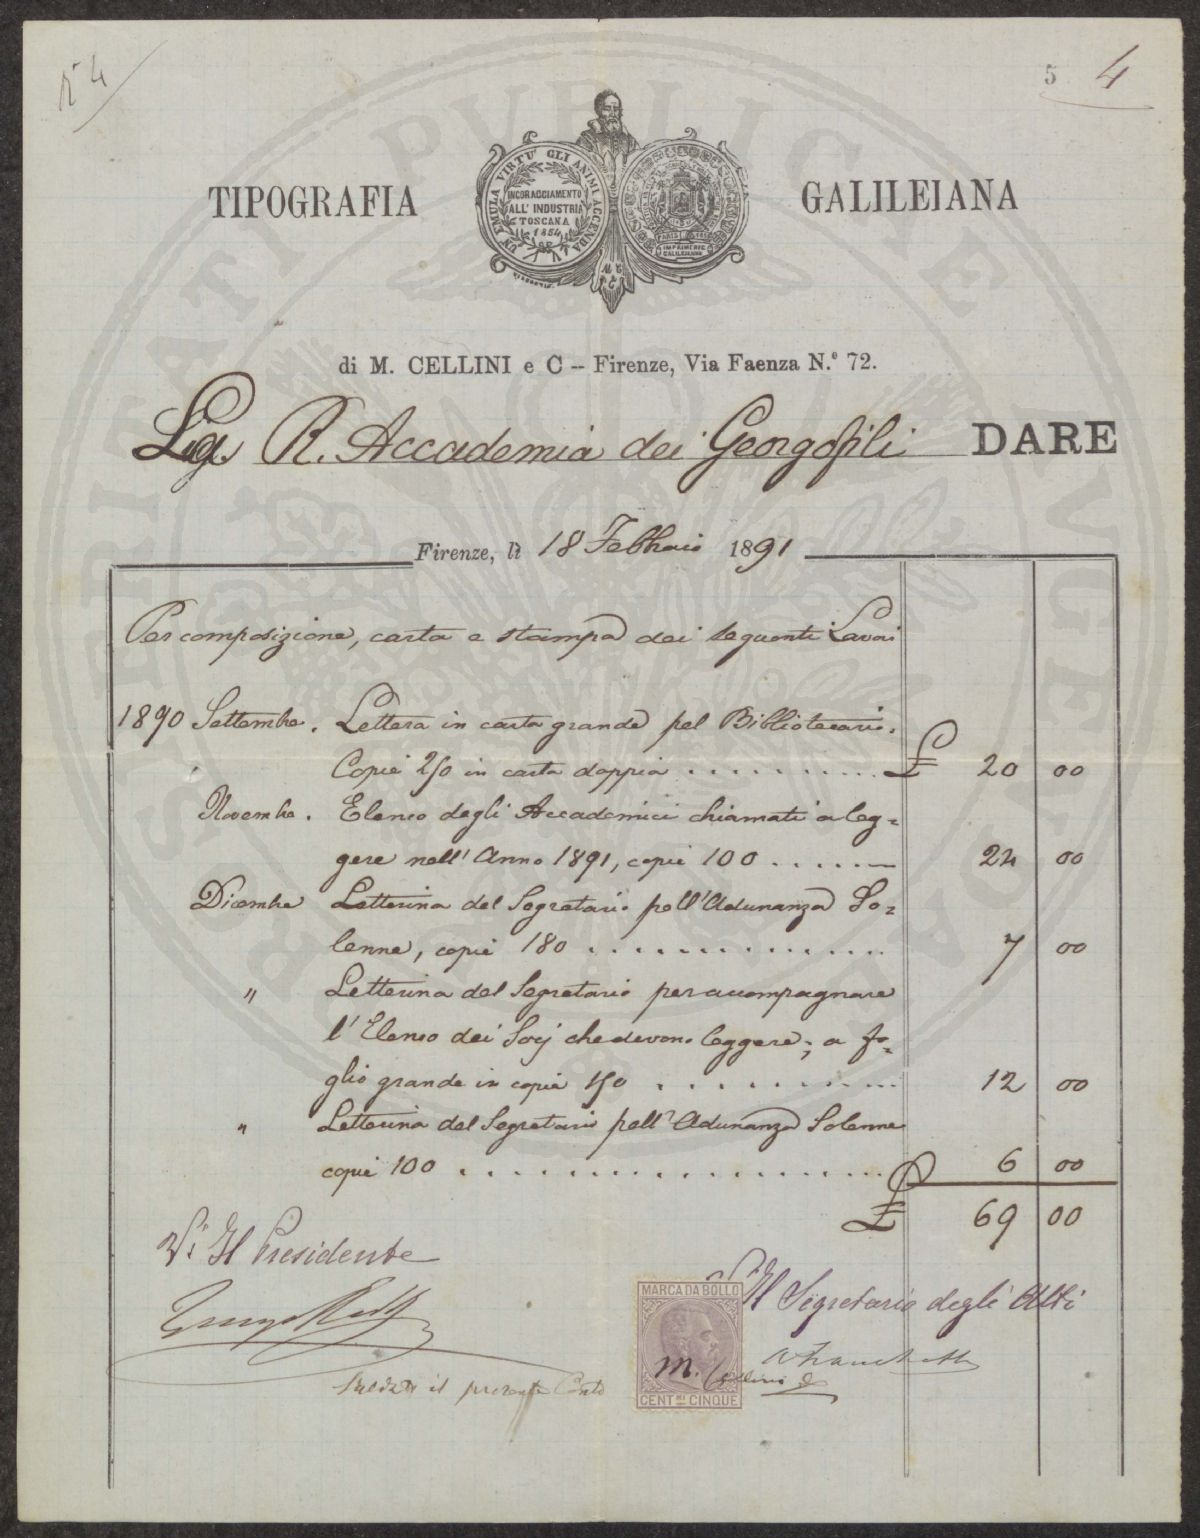 N° 4
5 4
TIPOGRAFIA GALILEIANA
UN EMULA VIRTU' GLI ANIMI ACCENDA
INCORAGGIAMENTO
ALL' INDUSTRIA
TOSCANA
1854
IMPRIMERIE
GALILEIANE
di M. CELLINI e C – Firenze, Via Faenza N.° 72.
R. Accademia dei Georgofili DARE
Firenze, lì 18 Febbraio 1891
Per composizione, carta e stampa dei seguenti Lavori
1890 Settembre. Lettera in carta grande pel Bibliotecario.
Copie 250 in carta doppia .......... £ 20 00
Novembre. Elenco degli Accademici chiamati a leg=
gere nell' Anno 1891, copie 100 ...... 24 00
Dicembre Letterina del Segretario pell'Adunanza So=
lenne, copie 180 .............. 7 00
" Letterina del Segretario per accompagnare
l'Elenco dei Socj che devono leggere; a fo=
glio grande in copie 150 .......... 12 00
" Letterina del Segretario pell'Adunanza Solenne
copie 100 .................... 6 00
£ 69 00
V° Il Presidente
V° Il Segretario degli Atti
MARCA DA BOLLO
A Franchetti
M. Cellini
CENT.MI CINQUE
Saldato il presente Conto
PROSPERITATI PVBLICAE AVGENDAE